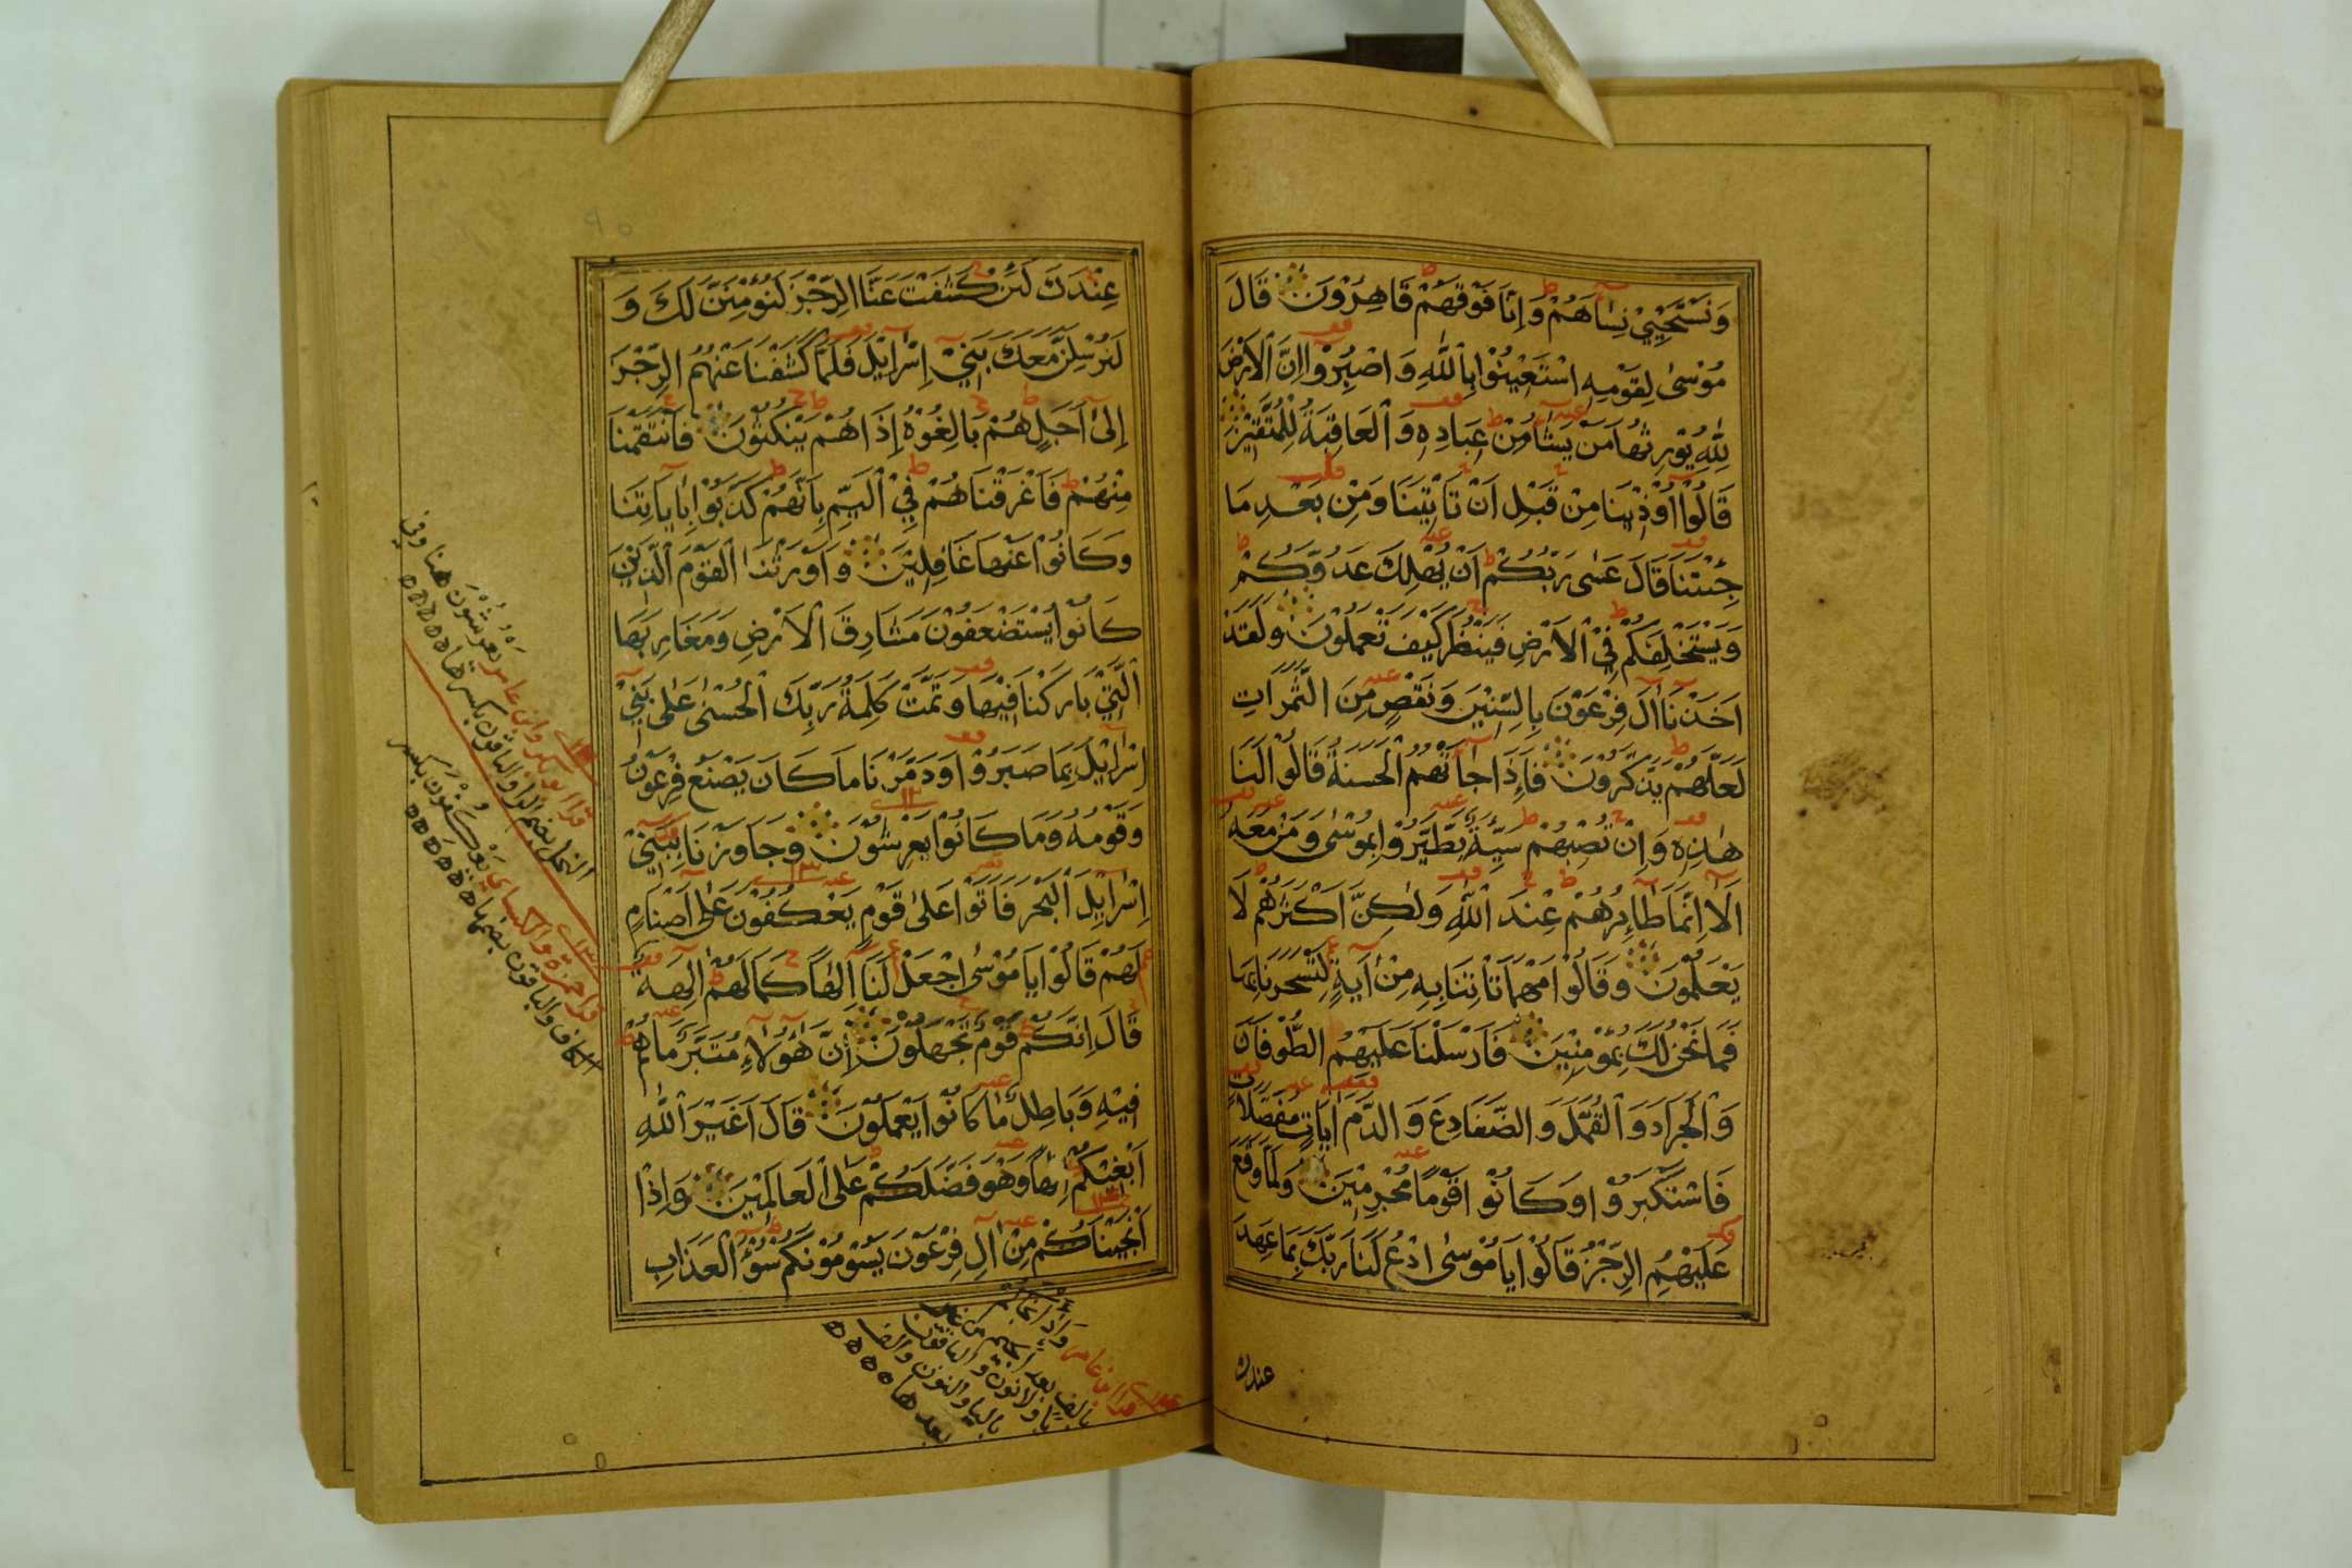 وَنَسْتَحْيِيْ نِسَاۤءَهُمْ وَاِنَّا فَوْقَهُمْ قَاهِرُوْنَ قَالَ
مُوْسٰى لِقَوْمِهِ اسْتَعِيْنُوْا بِاللّٰهِ وَ اصْبِرُوْا اِنَّ الْاَرْضَ
لِلّٰهِ يُوْرِثُهَا مَنْ يَشَاۤءُ مِنْ عِبَادِهٖ وَ الْعَاقِبَةُ لِلْمُتَّقِيْنَ
قَالُوْا اُوْذِيْنَا مِنْ قَبْلِ اَنْ تَاْتِيَنَا وَمِنْ بَعْدِ مَا
جِئْتَنَا قَالَ عَسٰى رَبُّكُمْ اَنْ يُهْلِكَ عَدُوَّكُمْ
وَيَسْتَخْلِفَكُمْ فِيْ الْاَرْضِ فَيَنْظُرَ كَيْفَ تَعْمَلُوْنَ وَلَقَدْ
اَخَذْنَا اٰلَ فِرْعَوْنَ بِالسِّنِيْنَ وَنَقْصٍ مِنَ الثَّمَرَاتِ
لَعَلَّهُمْ يَذَّكَّرُوْنَ فَاِذَا جَاۤءَتْهُمُ الْحَسَنَةُ قَالُوْا لَنَا
هٰذِهٖ وَاِنْ تُصِبْهُمْ سَيِّئَةٌ يَطَّيَّرُوْا بِمُوْسٰى وَمَنْ مَعَهٗ
اَلَا اِنَّمَا طَاۤئِرُهُمْ عِنْدَ اللّٰهِ وَلٰكِنَّ اَكْثَرَهُمْ لَا
يَعْلَمُوْنَ وَقَالُوْا مَهْمَا تَاْتِنَا بِهٖ مِنْ اٰيَةٍ لِتَسْحَرَنَا بِهَا
فَمَا نَحْنُ لَكَ بِمُؤْمِنِيْنَ فَاَرْسَلْنَا عَلَيْهِمُ الطُّوْفَانَ
وَالْجَرَادَ وَالْقُمَّلَ وَالضَّفَادِعَ وَالدَّمَ اٰيَاتٍ مُفَصَّلَاتٍ
فَاسْتَكْبَرُوْا وَكَانُوْا قَوْمًا مُجْرِمِيْنَ وَلَمَّا وَقَعَ
عَلَيْهِمُ الرِّجْزُ قَالُوْا يَا مُوْسٰى ادْعُ لَنَا رَبَّكَ بِمَا عَهِدَ
عندك
عِنْدَكَ لَئِنْ كَشَفْتَ عَنَّا الرِّجْزَ لَنُؤْمِنَنَّ لَكَ وَ
لَنُرْسِلَنَّ مَعَكَ بَنِيْ اِسْرَاۤئِيْلَ فَلَمَّا كَشَفْنَا عَنْهُمُ الرِّجْزَ
اِلٰى اَجَلٍ هُمْ بَالِغُوْهُ اِذَا هُمْ يَنْكُثُوْنَ فَانْتَقَمْنَا
مِنْهُمْ فَاَغْرَقْنَاهُمْ فِي الْيَمِّ بِاَنَّهُمْ كَذَّبُوْا بِاٰيَاتِنَا
وَكَانُوْا عَنْهَا غَافِلِيْنَ وَاَوْرَثْنَا الْقَوْمَ الَّذِيْنَ
كَانُوْا يُسْتَضْعَفُوْنَ مَشَارِقَ الْاَرْضِ وَمَغَارِبَهَا
الَّتِيْ بَارَكْنَا فِيْهَا وَتَمَّتْ كَلِمَةُ رَبِّكَ الْحُسْنٰى عَلٰى بَنِيْ
اِسْرَاۤئِيْلَ بِمَا صَبَرُوْا وَدَمَّرْنَا مَا كَانَ يَصْنَعُ فِرْعَوْنُ
وَقَوْمُهٗ وَمَا كَانُوْا يَعْرِشُوْنَ وَجَاوَزْنَا بِبَنِيْ
اِسْرَاۤئِيْلَ الْبَحْرَ فَاَتَوْا عَلٰى قَوْمٍ يَعْكُفُوْنَ عَلٰى اَصْنَامٍ
لَهُمْ قَالُوْا يَا مُوْسٰى اجْعَلْ لَنَا اِلٰهًا كَمَا لَهُمْ اٰلِهَةٌ
قَالَ اِنَّكُمْ قَوْمٌ تَجْهَلُوْنَ اِنَّ هٰؤُلَاۤءِ مُتَبَّرٌ مَا هُمْ
فِيْهِ وَبَاطِلٌ مَا كَانُوْا يَعْمَلُوْنَ قَالَ اَغَيْرَ اللّٰهِ
اَبْغِيْكُمْ اِلٰهًا وَهُوَ فَضَّلَكُمْ عَلَى الْعَالَمِيْنَ وَاِذْ
اَنْجَيْنَاكُمْ مِنْ اٰلِ فِرْعَوْنَ يَسُوْمُوْنَكُمْ سُوْۤءَ الْعَذَابِ
قرا ابو بكر وابن عامر يَعْرُشُوْنَ هنا وفي
النحل بضم الرا والباقون بكسرها
قرا حمزة والكسائي يَعْكِفُوْنَ بكسر
الكاف والباقون بضمها
قرا ابن عامر وَاِذْ اَنْجَاكُمْ
بالف بعد الجيم من غير
يا ولا نون والباقون
باليا والنون والف
بعدها